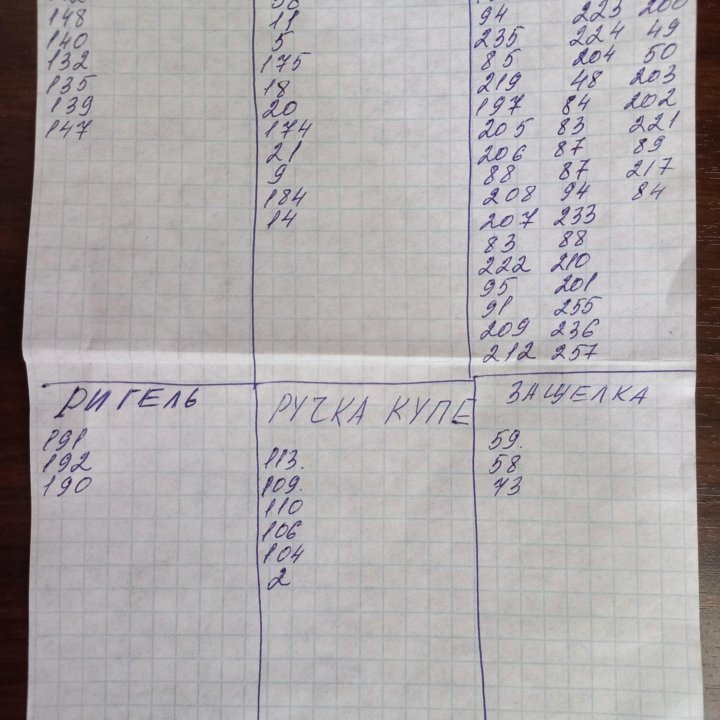 148
140
132
135
139
147
11
5
175
18
20
174
21
9
184
14
94 223 200
235 224 49
85 204 50
219 48 203
197 84 202
205 83 221
206 87 89
88 87 217
208 94 84
207 233
83 88
222 210
95 201
91 255
209 236
212 257
РИГЕЛЬ
191
192
190
РУЧКА КУПЕ
113.
109.
110
106
104
2
ЗАЩЕЛКА
59.
58
73